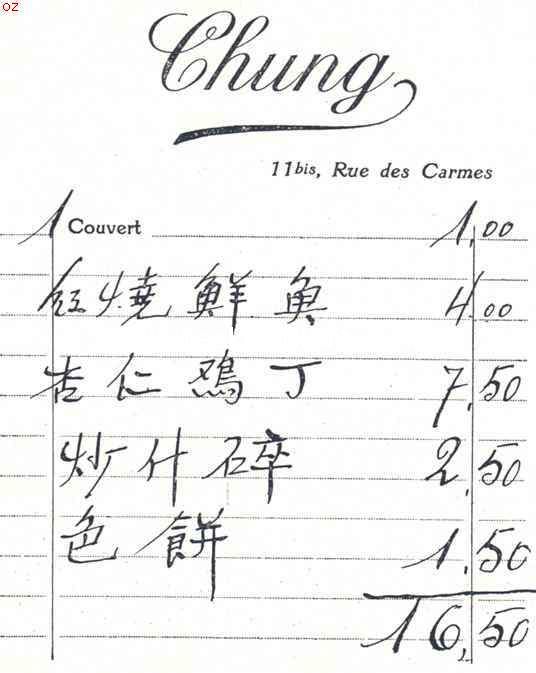 oz
Chung
11bis, Rue des Carmes
1 Couvert 1,00
紅燒鮮魚 4.00
杏仁鷄丁 7,50
炒什碎 2,50
色餅 1,50
16,50